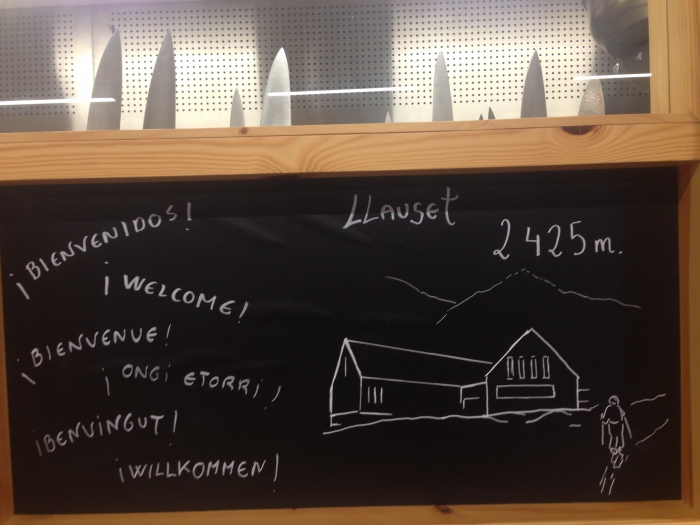 ¡BIENVENIDOS!
¡WELCOME!
¡BIENVENUE!
¡ONGI ETORRI!
¡BENVINGUT!
¡WILLKOMMEN!
LLAUSET
2425m.